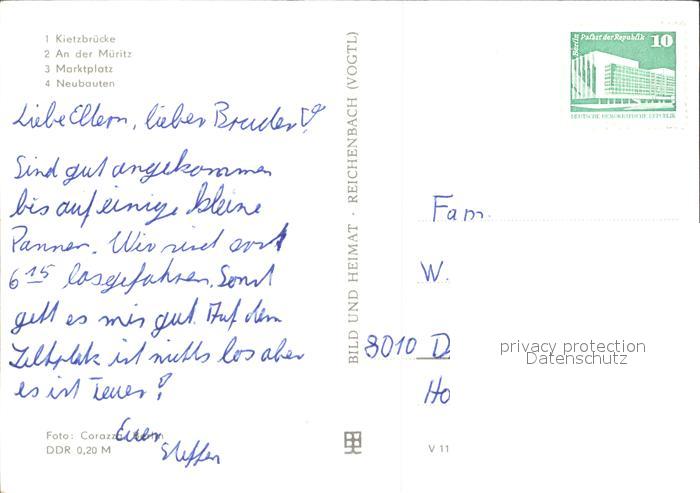 1 Kietzbrücke
2 An der Müritz
3 Marktplatz
4 Neubauten
Liebe Eltern, lieber Bruder!
Sind gut angekommen
bis auf einige kleine
Pannen. Wir sind erst
6 15 losgefahren. Sonst
geht es mir gut. Auf dem
Zeltplatz ist nichts los aber
es ist teuer!
Euer
Steffen
Foto: Corazza, Berlin
DDR 0,20 M
BILD UND HEIMAT · REICHENBACH (VOGTL)
V 11
Berlin Palast der Republik 10
DEUTSCHE DEMOKRATISCHE REPUBLIK
Fam.
W.
8010 D
Ho
privacy protection
Datenschutz